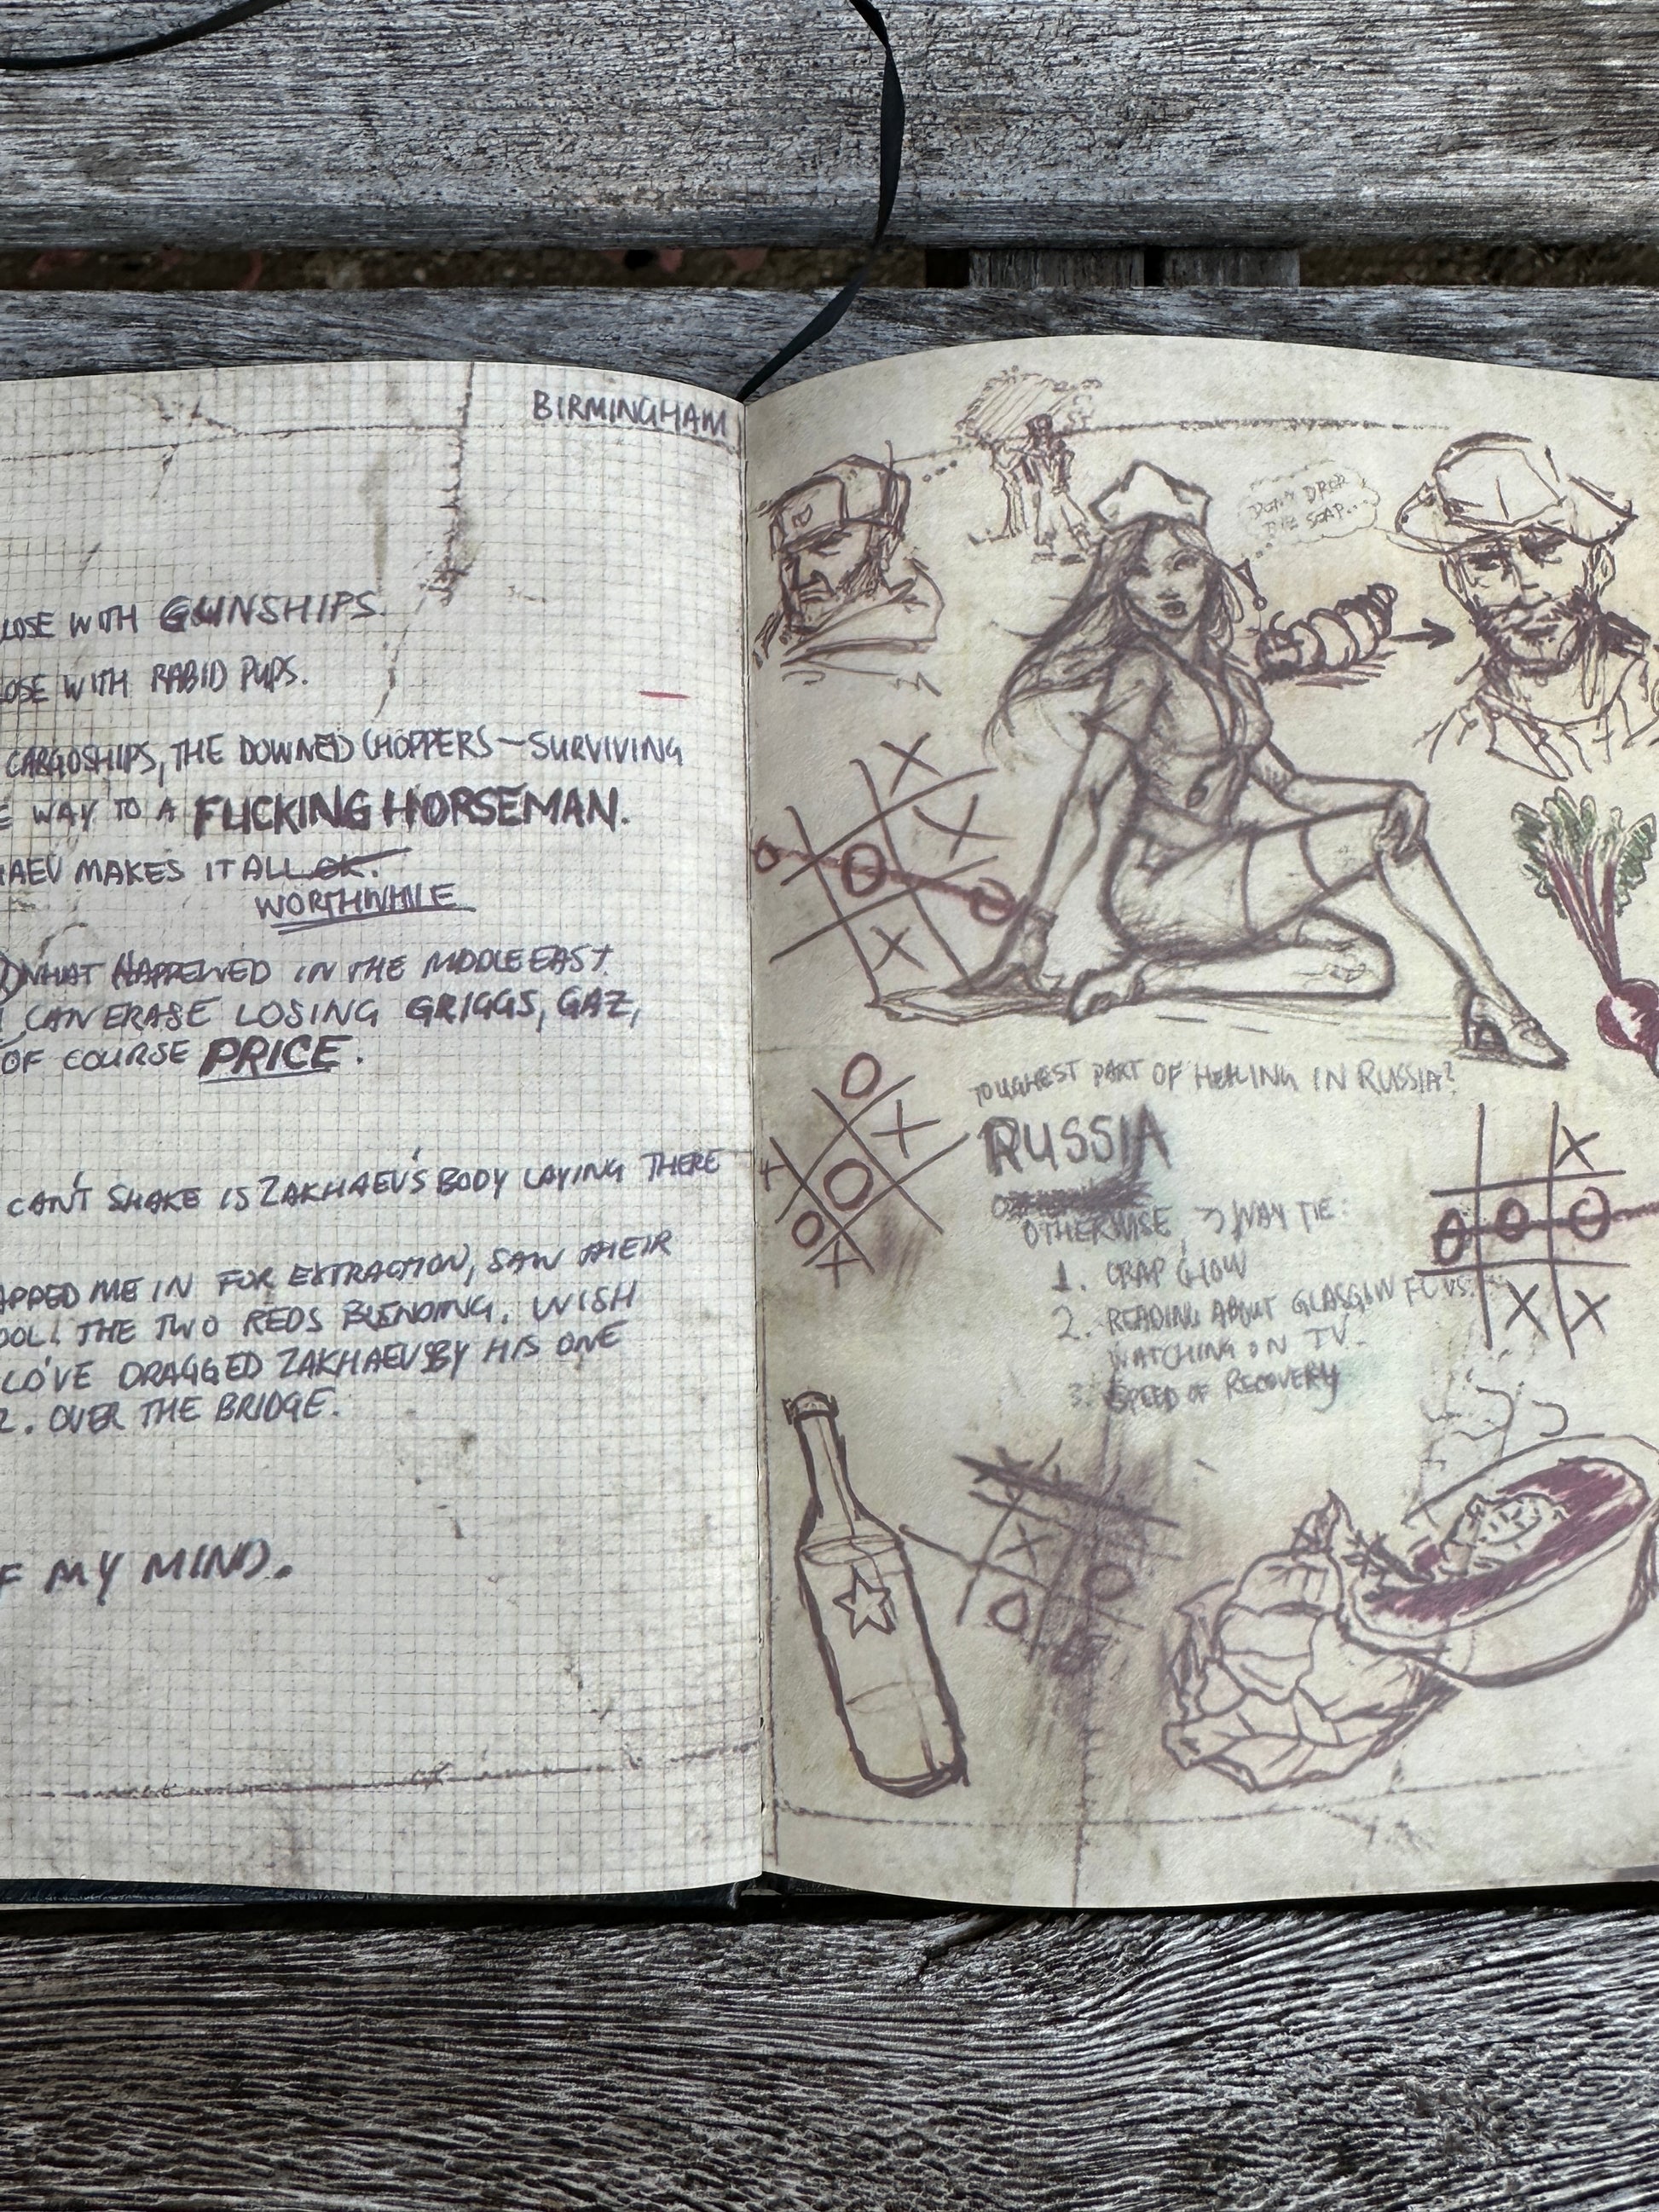 BIRMINGHAM
LOSE WITH GUNSHIPS.
LOSE WITH RABID PUPS.
CARGOSHIPS, THE DOWNED CHOPPERS—SURVIVING
WAY TO A FUCKING HORSEMAN.
HAEV MAKES IT ALL OK.
WORTHWHILE
WHAT HAPPENED IN THE MIDDLE EAST.
CAN ERASE LOSING GRIGGS, GAZ,
OF COURSE PRICE.
CAN'T SHAKE IS ZAKHAEV'S BODY LAYING THERE
APPED ME IN FOR EXTRACTION, SAW THEIR
OOL. THE TWO REDS BLENDING. WISH
LD'VE DRAGGED ZAKHAEV BY HIS ONE
OVER THE BRIDGE.
F MY MIND.
DON'T DROP
THE SOAP...
TOUGHEST PART OF HEALING IN RUSSIA?
RUSSIA
OTHERWISE, 3 WAY TIE:
1. CRAP CHOW
2. READING ABOUT GLASGOW FC VS.
WATCHING ON TV.
3. SPEED OF RECOVERY